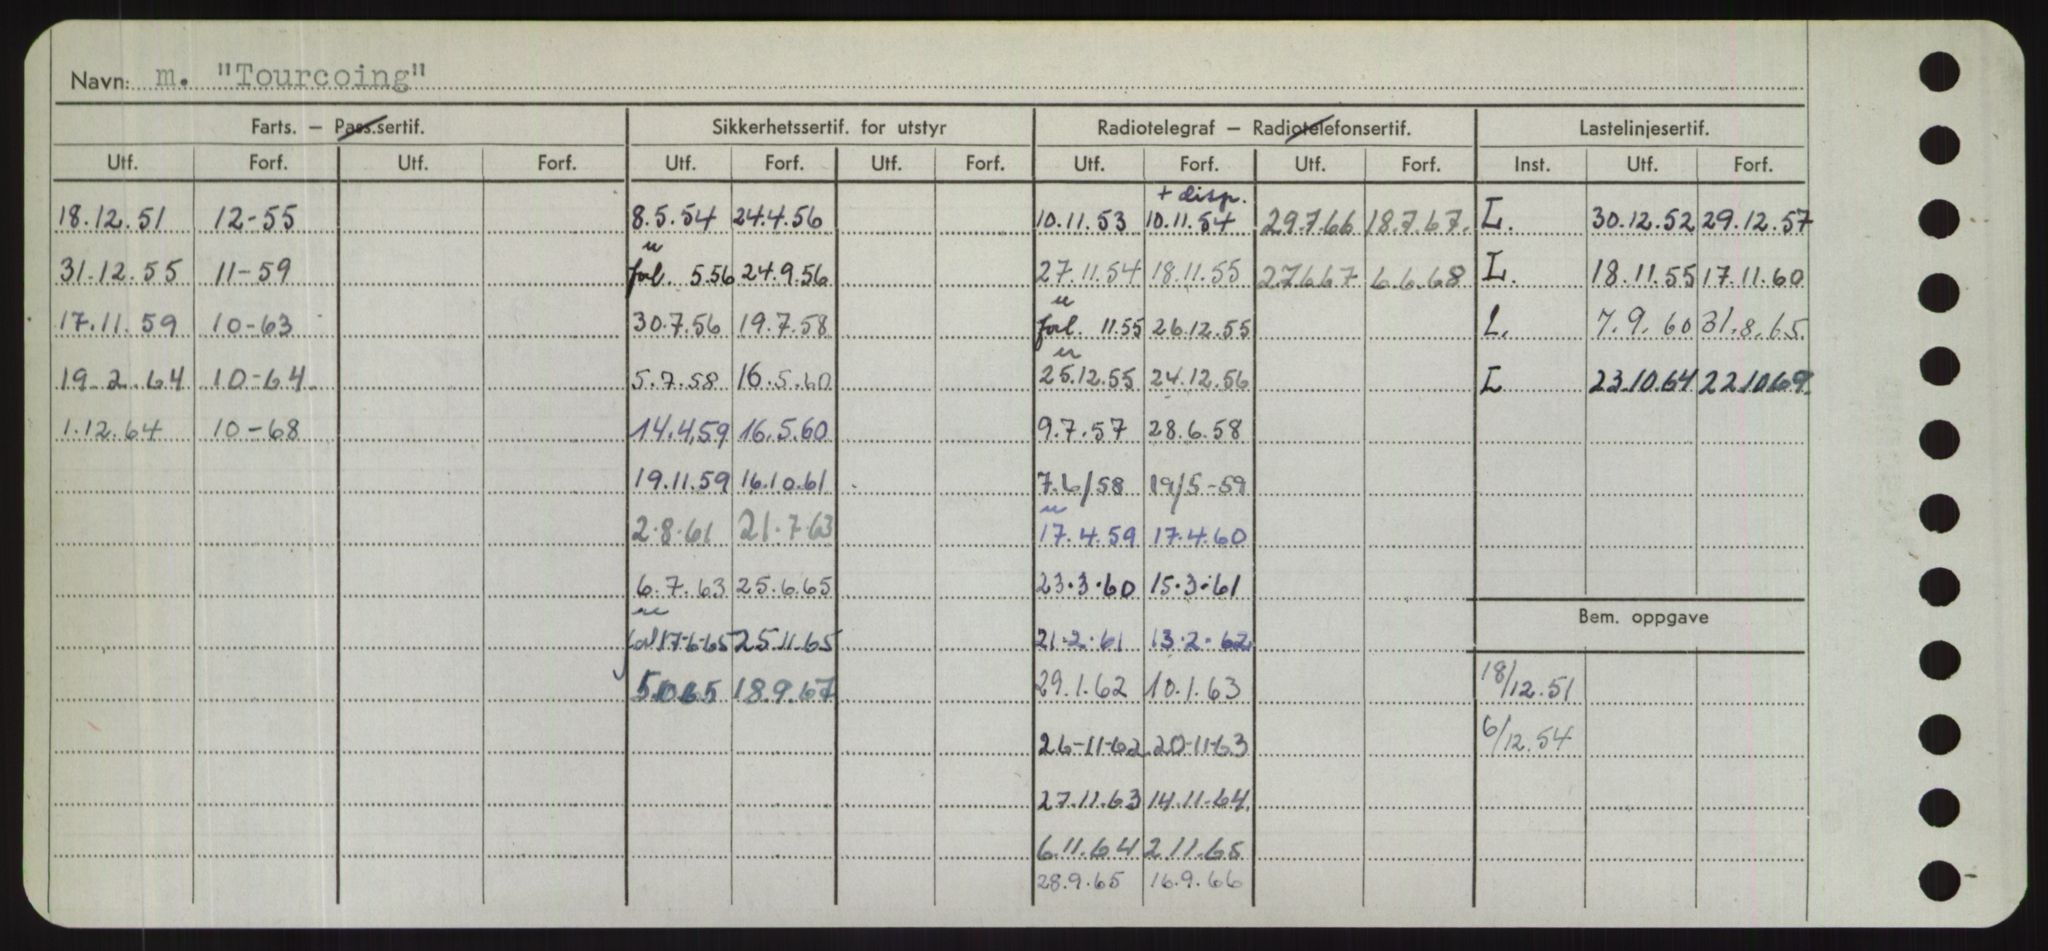 Navn: m. "Tourcoing"
Farts. – Pass.sertif. Sikkerhetssertif. for utstyr Radiotelegraf – Radiotelefonsertif. Lastelinjesertif.
Utf. Forf. Utf. Forf. Utf. Forf. Utf. Forf. Utf. Forf. Utf. Forf. Inst. Utf. Forf.
+ disp.
18.12.51 12-55 8.5.54 24.4.56 10.11.53 10.11.54 29.7.66 18.7.67. L. 30.12.52 29.12.57
31.12.55 11-59 forl. 5.56 24.9.56 27.11.54 18.11.55 27667 6.6.68 L. 18.11.55 17.11.60
17.11.59 10-63 30.7.56 19.7.58 forl. 11.55 26.12.55 L. 7.9.60 31.8.65.
19.2.64 10-64. 5.7.58 16.5.60 25.12.55 24.12.56 L 23.10.64 22.10.69.
1.12.64 10-68 14.4.59 16.5.60 9.7.57 28.6.58
19.11.59 16.10.61 7.6/58 19/5-59
2.8.61 21.7.63 17.4.59 17.4.60
6.7.63 25.6.65 23.3.60 15.3.61
Bem. oppgave
forl 17-6-65 25.11.65 21.2.61 13.2.62
5.10.65 18.9.67 29.1.62 10.1.63 18/12.51
26-11-62 20-11-63 6/12.54
27.11.63 14.11-64.
6.11.64 2.11.65
28.9.65 16.9.66